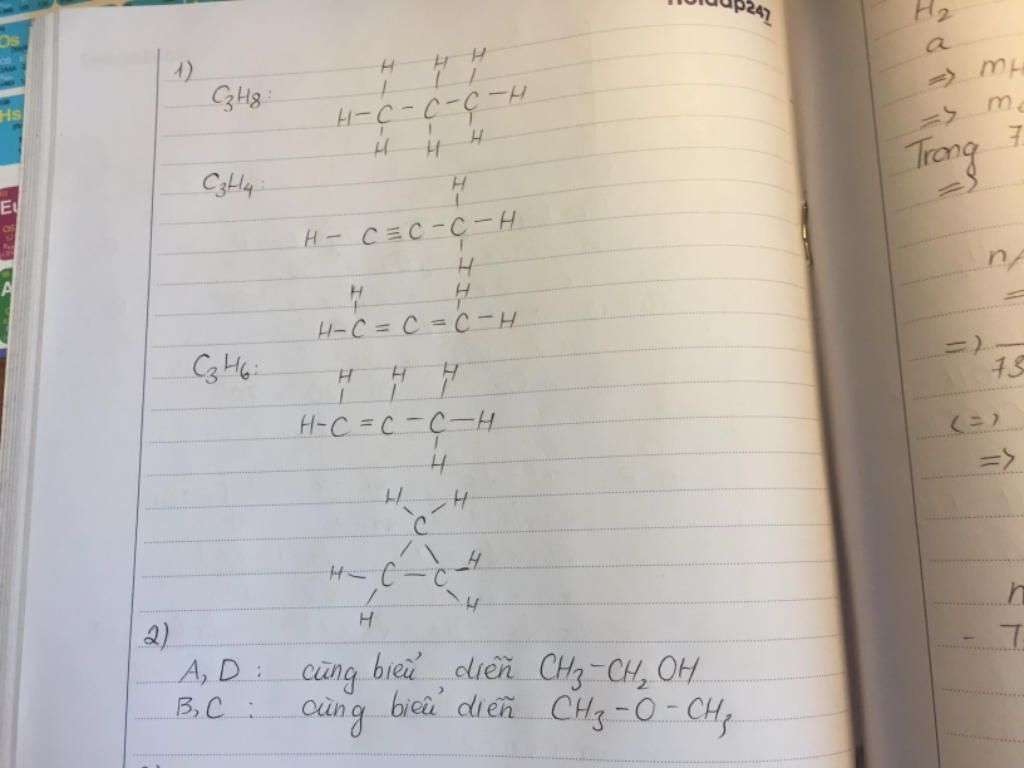 Hoidap247
1)
C3H8:
H H H
H-C-C-C-H
H H H
C3H4:
H
H - C≡C-C-H
H
H H
H-C=C=C-H
C3H6:
H H H
H-C=C-C-H
H
H H
C
H-C-C-H
H H
2)
A, D : cùng biểu diễn CH3-CH2OH
B, C : cùng biểu diễn CH3-O-CH3
H2
a
=> mH
=> m
Trong 7
=>
n
=
=>
73
(=)
=>
n
- T
Os
Hs
Eu